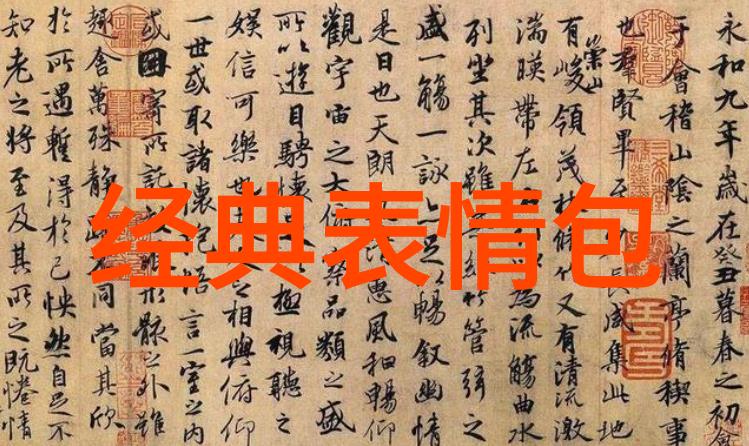 经典表情包
永和九年歲在癸丑暮春之初會
于會稽山陰之蘭亭脩稧事
也羣賢畢至長咸集此地
有崇山峻領茂林脩竹又有清流激
湍暎帶左為流觴曲水
列坐其次雖管弦之
盛一觴一詠足以暢叙幽情
是日也天朗惠風和暢仰
觀宇宙之大俯察品類之盛
所以遊目騁懷極視聽之
娛信可樂也之相與俯仰
一世或取諸懷抱悟言一室之内
或因寄所託形骸之外雖
趣舍萬殊静同當其欣
於所遇暫得於己怏然自足不
知老之將至及其所之既惓情